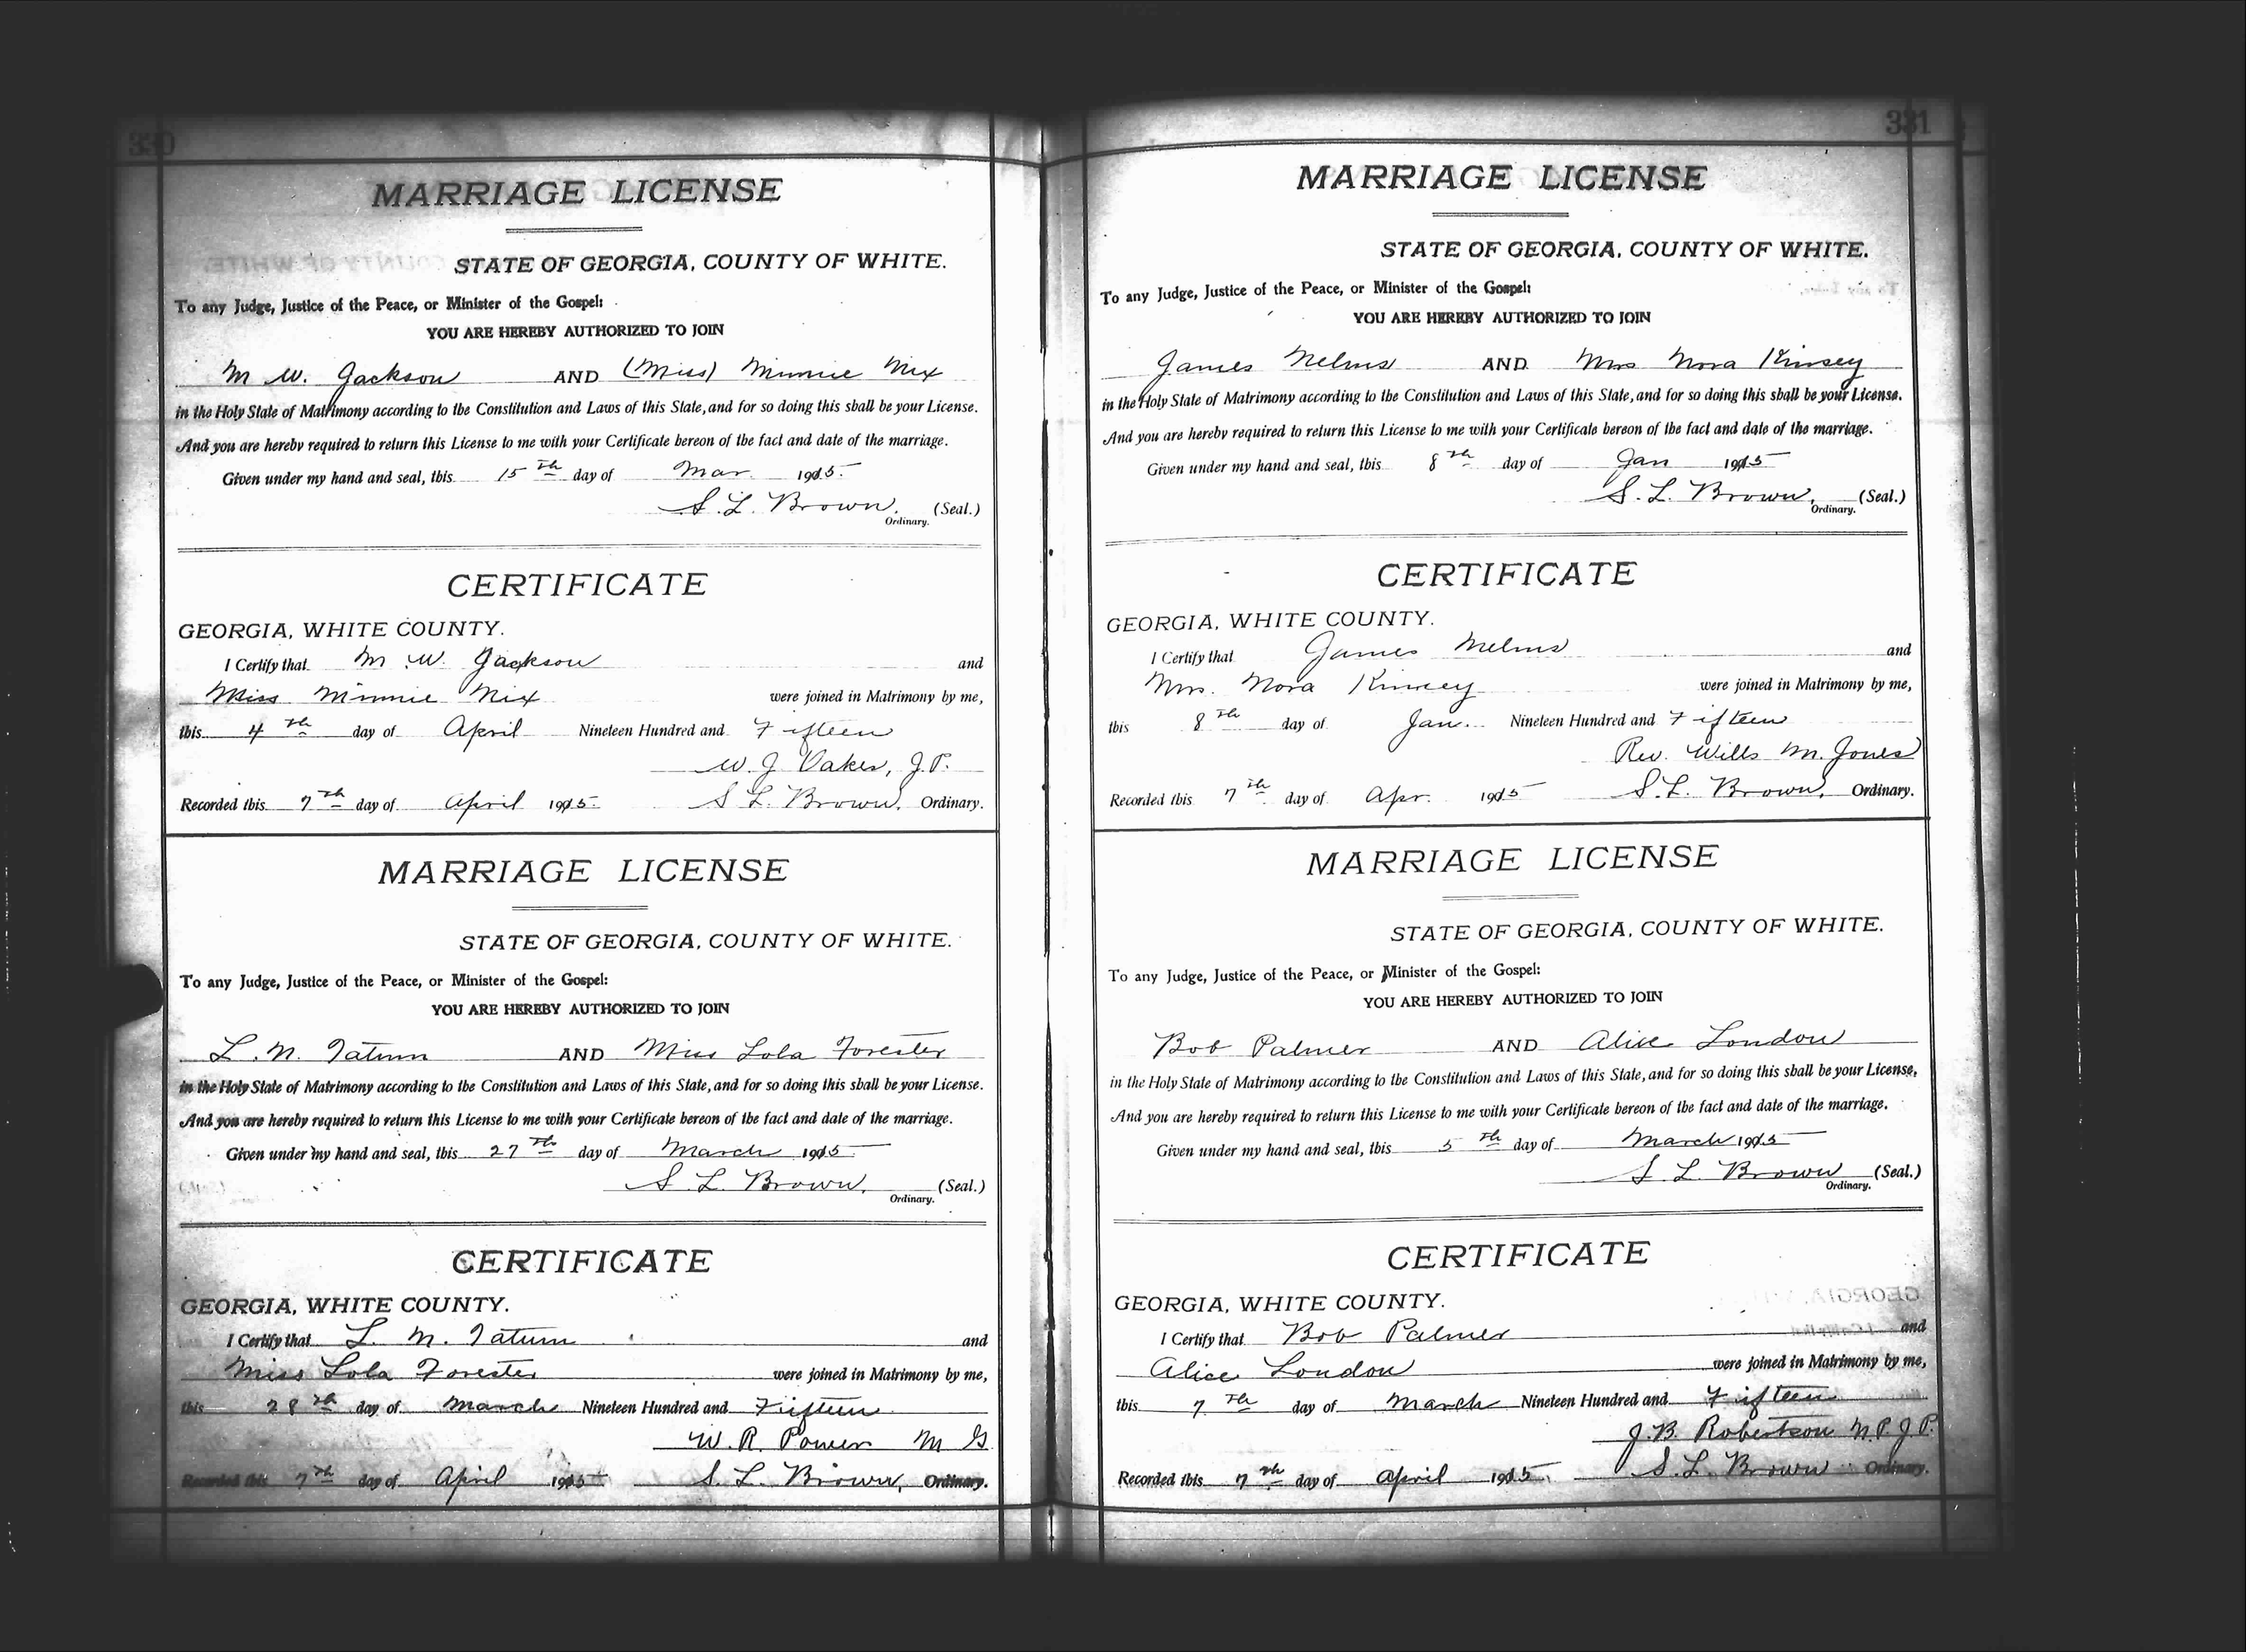 330
MARRIAGE LICENSE
STATE OF GEORGIA, COUNTY OF WHITE.
To any Judge, Justice of the Peace, or Minister of the Gospel:
YOU ARE HEREBY AUTHORIZED TO JOIN
M W. Jackson AND (Miss) Minnie Nix
in the Holy State of Matrimony according to the Constitution and Laws of this State, and for so doing this shall be your License.
And you are hereby required to return this License to me with your Certificate hereon of the fact and date of the marriage.
Given under my hand and seal, this 15th day of Mar. 1915.
S. L. Brown, (Seal.)
Ordinary.
CERTIFICATE
GEORGIA, WHITE COUNTY.
I Certify that M W. Jackson and
Miss Minnie Nix were joined in Matrimony by me,
this 4th day of April Nineteen Hundred and Fifteen
W. J. Oakes, J.P.
Recorded this 7th day of April 1915. S L. Brown, Ordinary.
MARRIAGE LICENSE
STATE OF GEORGIA, COUNTY OF WHITE.
To any Judge, Justice of the Peace, or Minister of the Gospel:
YOU ARE HEREBY AUTHORIZED TO JOIN
L. N. Tatum AND Miss Lola Forester
in the Holy State of Matrimony according to the Constitution and Laws of this State, and for so doing this shall be your License.
And you are hereby required to return this License to me with your Certificate hereon of the fact and date of the marriage.
Given under my hand and seal, this 27th day of March 1915.
S. L. Brown, (Seal.)
Ordinary.
CERTIFICATE
GEORGIA, WHITE COUNTY.
I Certify that L. N. Tatum and
Miss Lola Forester were joined in Matrimony by me,
this 28th day of March Nineteen Hundred and Fifteen
W. R. Power M G.
Recorded this 7th day of April 1915 S. L. Brown, Ordinary.
331
MARRIAGE LICENSE
STATE OF GEORGIA, COUNTY OF WHITE.
To any Judge, Justice of the Peace, or Minister of the Gospel:
YOU ARE HEREBY AUTHORIZED TO JOIN
James Nelms AND Mrs Nora Kinsey
in the Holy State of Matrimony according to the Constitution and Laws of this State, and for so doing this shall be your License.
And you are hereby required to return this License to me with your Certificate hereon of the fact and date of the marriage.
Given under my hand and seal, this 8th day of Jan 1915
S. L. Brown, (Seal.)
Ordinary.
CERTIFICATE
GEORGIA, WHITE COUNTY.
I Certify that James Nelms and
Mrs. Nora Kinsey were joined in Matrimony by me,
this 8th day of Jan. Nineteen Hundred and Fifteen
Rev. Wills M. Jones
Recorded this 7th day of Apr. 1915 S. L. Brown, Ordinary.
MARRIAGE LICENSE
STATE OF GEORGIA, COUNTY OF WHITE.
To any Judge, Justice of the Peace, or Minister of the Gospel:
YOU ARE HEREBY AUTHORIZED TO JOIN
Bob Palmer AND Alice London
in the Holy State of Matrimony according to the Constitution and Laws of this State, and for so doing this shall be your License,
And you are hereby required to return this License to me with your Certificate hereon of the fact and date of the marriage.
Given under my hand and seal, this 5th day of March 1915
S. L. Brown (Seal.)
Ordinary.
CERTIFICATE
GEORGIA, WHITE COUNTY.
I Certify that Bob Palmer and
Alice London were joined in Matrimony by me,
this 7th day of March Nineteen Hundred and Fifteen
J. B. Robertson N. P. J P.
Recorded this 7th day of April 1915. S. L. Brown Ordinary.